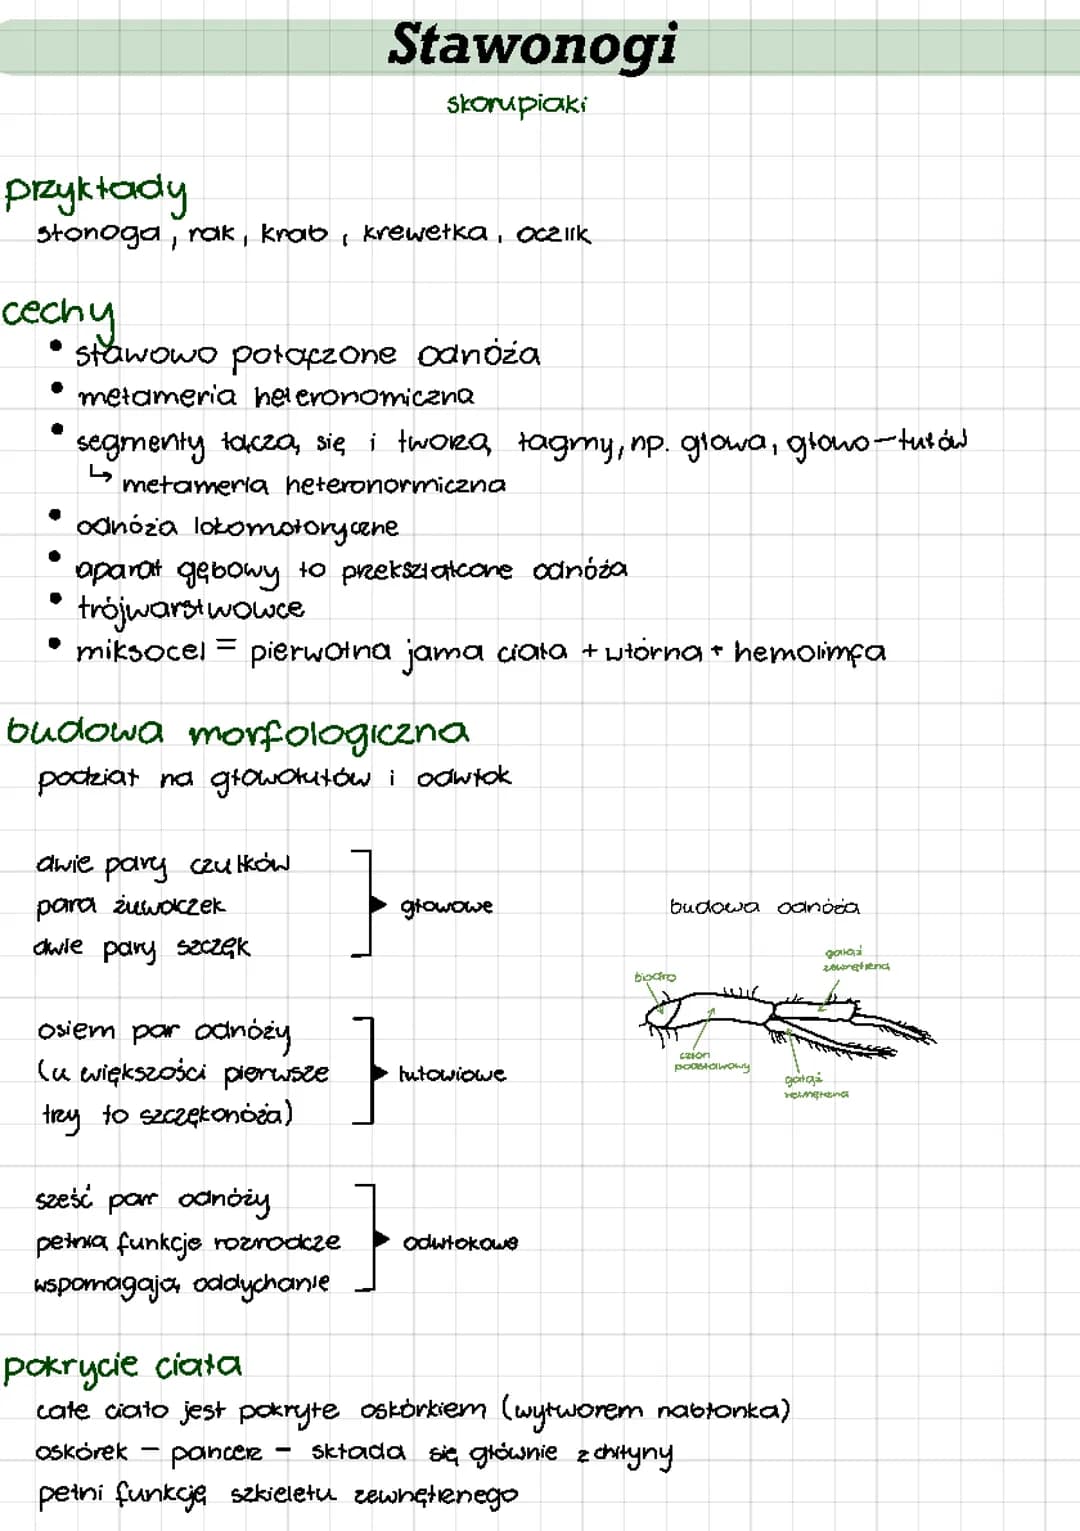 Stawonogi
skorupiaki
przykłady
stonoga, rak, krab, krewetka, oczlik
cechy
• stawowo połączone odnóża
• metameria heteronomiczna
• segmenty łączą się i tworzą tagmy, np. głowa, głowo-tułów
↳ metameria heteronormiczna
• odnóża lokomotoryczne
• aparat gębowy to przekształcone odnóża
• trójwarstwowce
• miksocel = pierwotna jama ciała + wtórna + hemolimfa
budowa morfologiczna
podział na głowotułów i odwłok
dwie pary czułków
para żuwaczek
dwie pary szczęk
głowowe
budowa odnóża
biodro
gałąź
zewnętrzna
człon
podstawowy
gałąź
wewnętrzna
osiem par odnóży
(u większości pierwsze
trzy to szczękonóża)
tułowiowe
sześć par odnóży
pełnią funkcje rozrodcze
wspomagają oddychanie
odwłokowe
pokrycie ciała
całe ciało jest pokryte oskórkiem (wytworem nabłonka)
oskórek - pancerz - składa się głównie z chityny
pełni funkcję szkieletu zewnętrznego